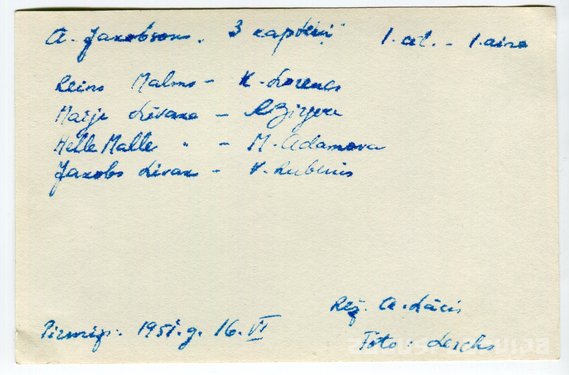 A. Jakobsons. 3 kapteiņi 1. cēl. - 1. aina
Reins Malms - K. Lorencs
Maija Līvana -
Helle Malle " - M. Adamova
Jakobs Līvas - V. Lubenis
Rež. A. Lācis
Pirmizr. 1951. g. 16. VI
Foto - Lerchs